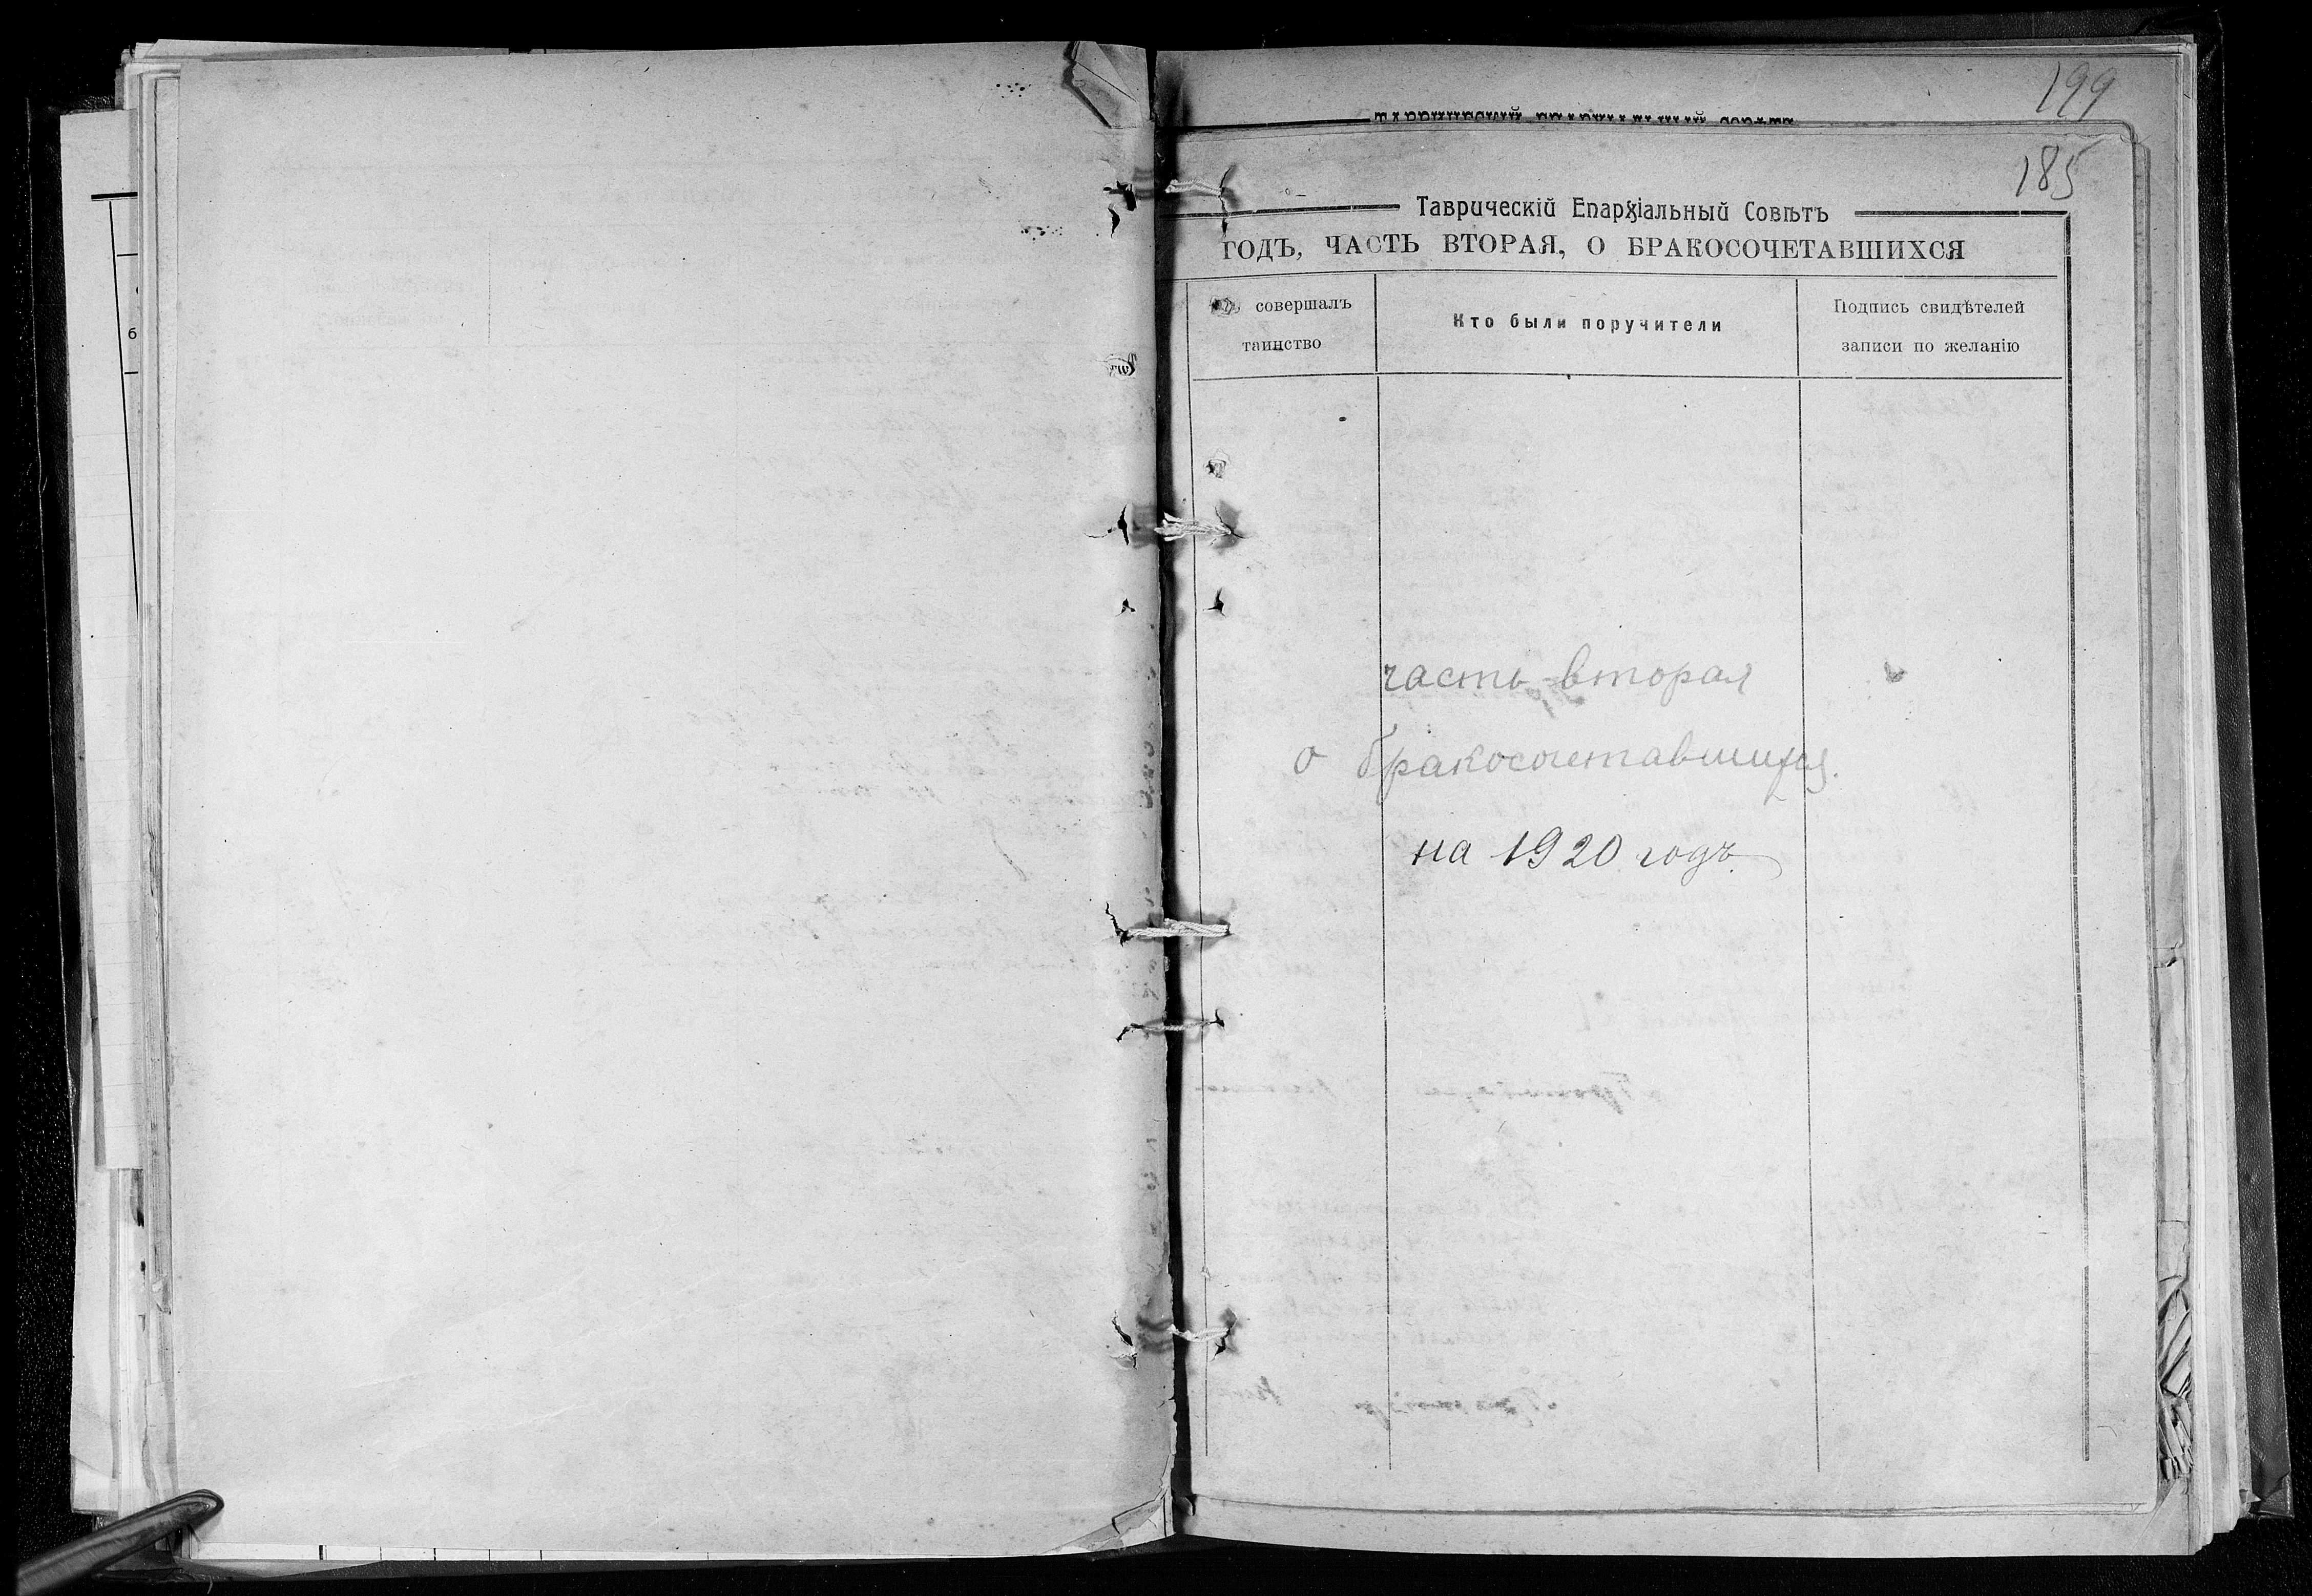 199
185
Таврическій Епархіальный Совѣтъ
ГОДЪ, ЧАСТЬ ВТОРАЯ, О БРАКОСОЧЕТАВШИХСЯ
совершалъ
таинство
Кто были поручители
Подпись свидѣтелей
записи по желанію
часть вторая
о бракосочетавшихся.
на 1920 годъ.